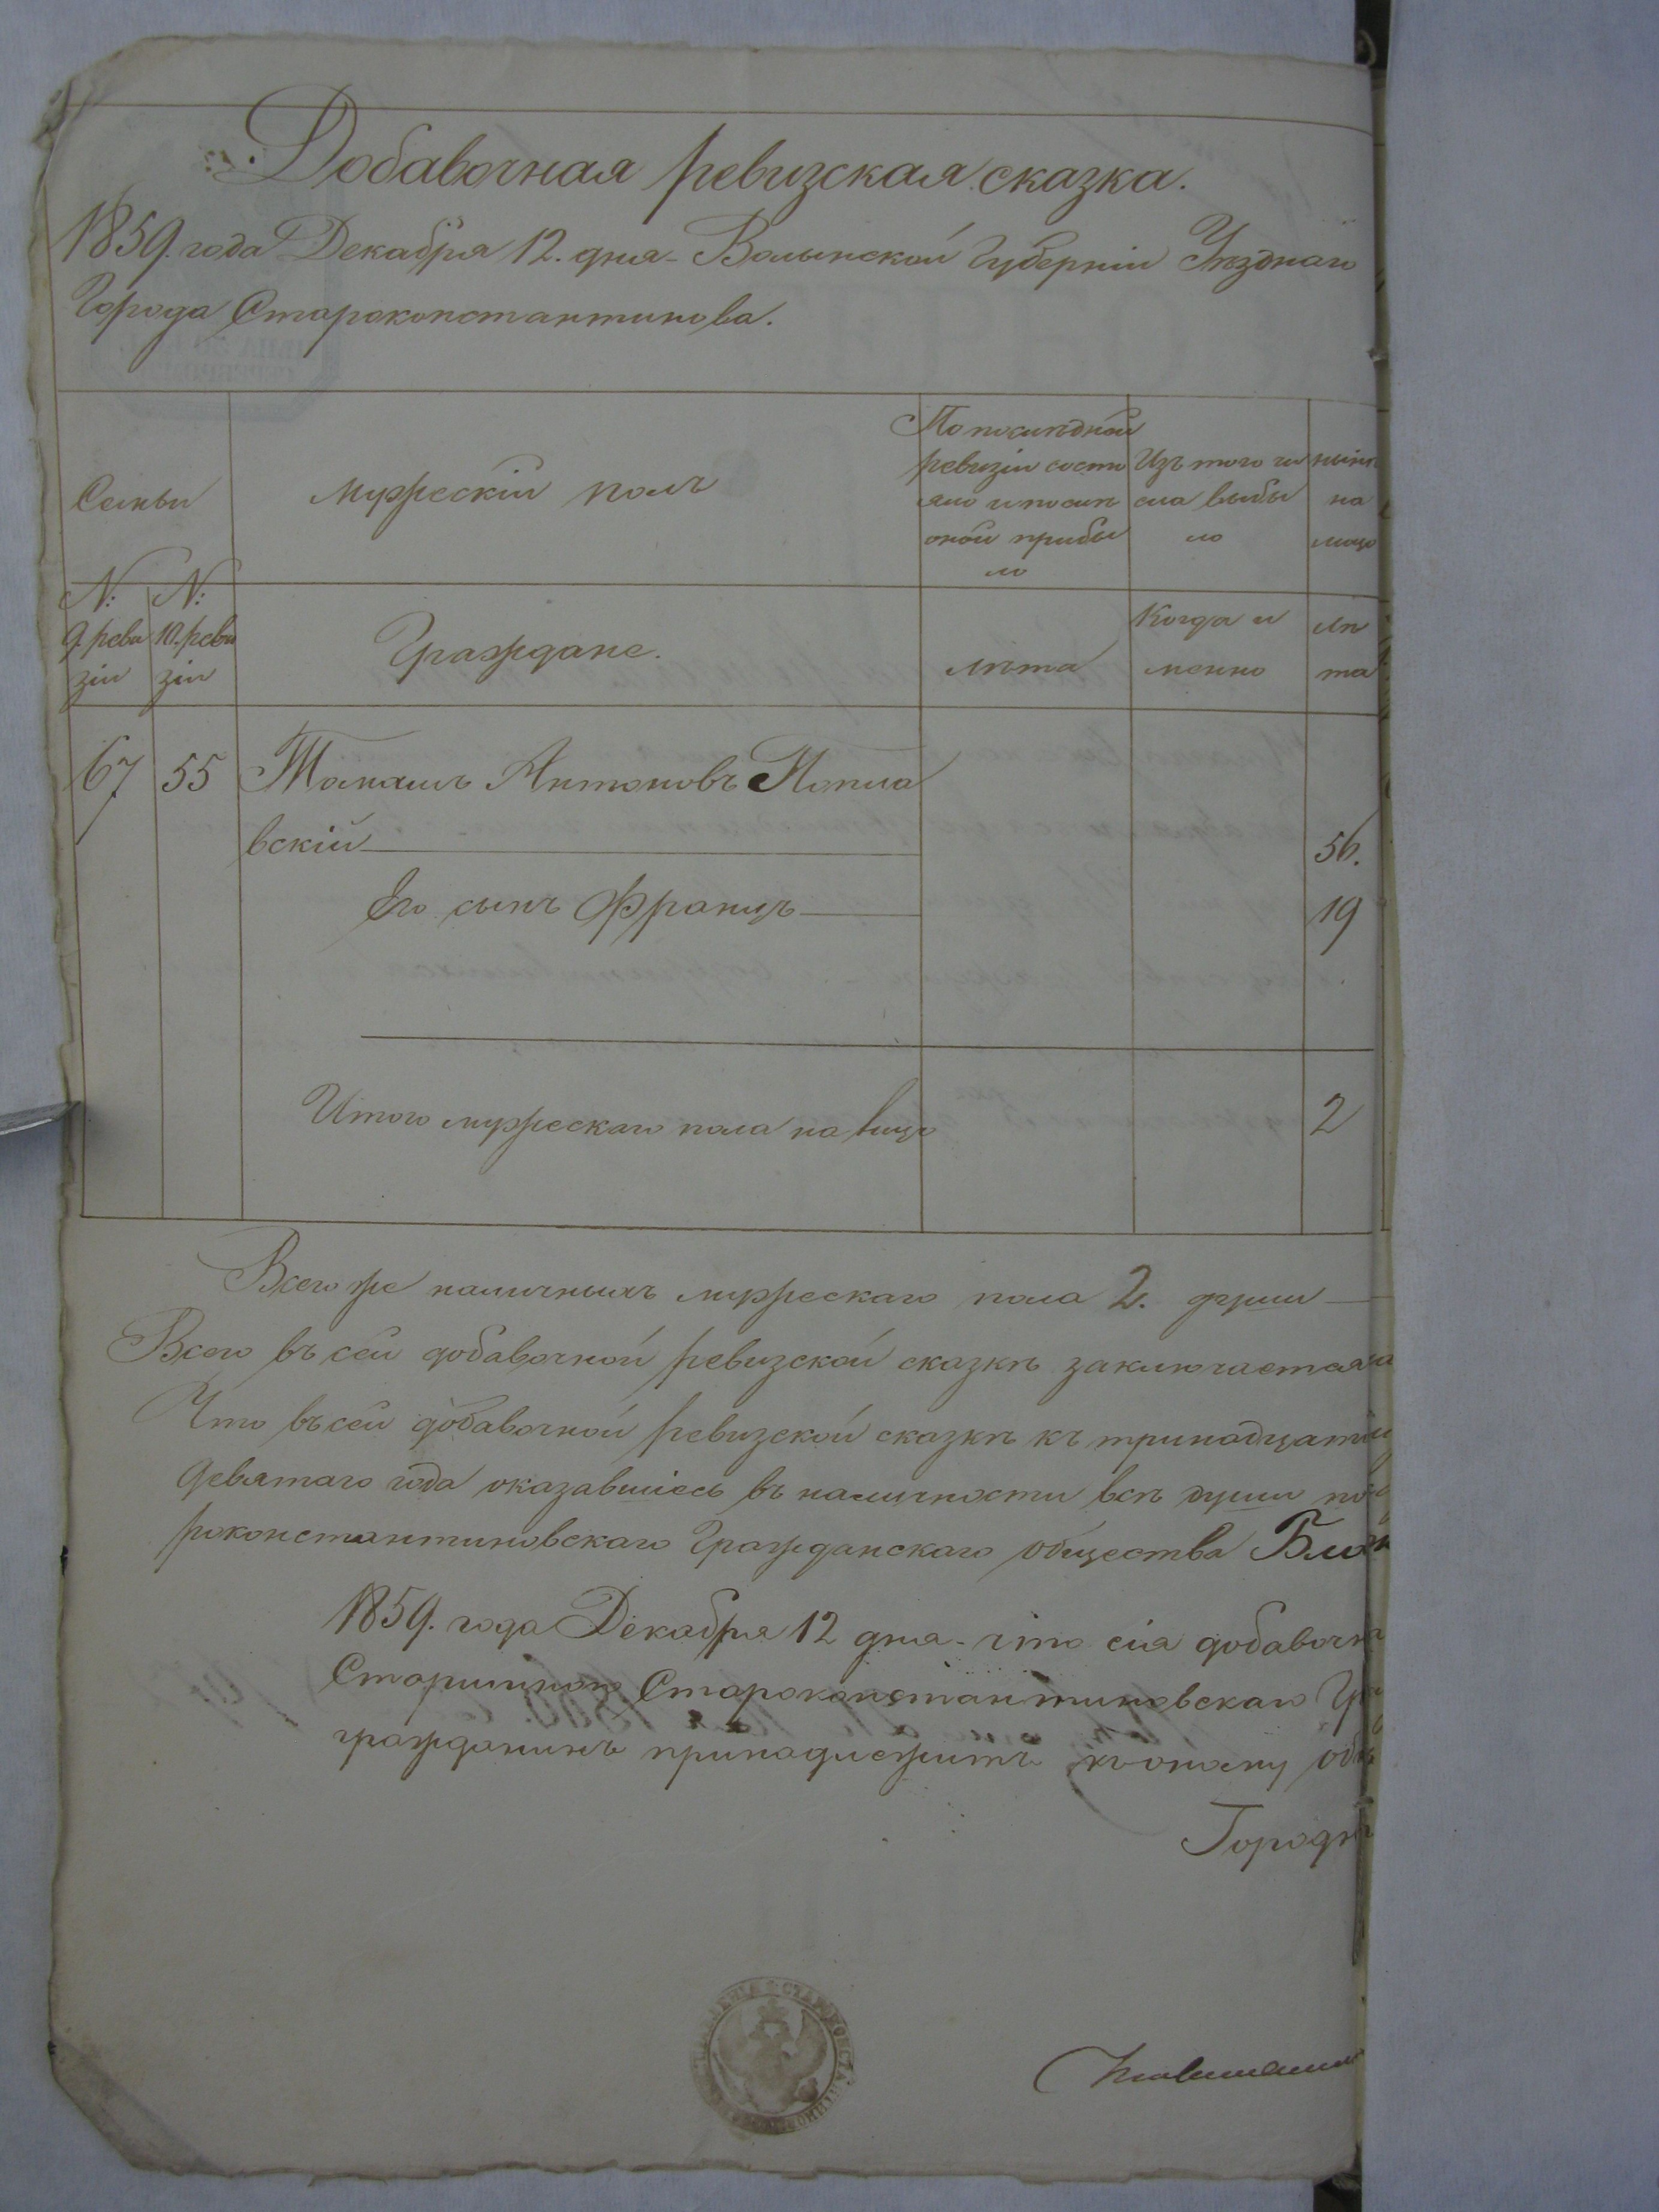 Добавочная ревизская сказка.
1859. года Декабря 12. дня - Волынской Губерніи Уѣзднаго
Города Староконстантинова.
Семьи
Мужескій полъ
По послѣдней
ревизіи состо
яло и послѣ
оной прибы
ло
Изъ того чи
сла выбы
ло
нынѣ
на
лицо
№: №:
9. реви
зіи
10. реви
зіи
Граждане.
лѣта
Когда и
менно
лѣ
та
67 55 Томашъ Антоновъ Попла
вскій 56.
Его сынъ Францъ 19
Итого мужескаго пола на лицо 2
Всего же наличныхъ мужескаго пола 2. души
Всего въ сей добавочной ревизской сказкѣ заключается
Что въ сей добавочной ревизской сказкѣ къ
девятаго года оказавшіесь въ наличности всѣ души
роконстантиновскаго Гражданскаго общества
1859. года Декабря 12 дня - что сія добавочн
Старшиною Староконстантиновскаго Гр
гражданинъ принадлежитъ къ оному об
Городн